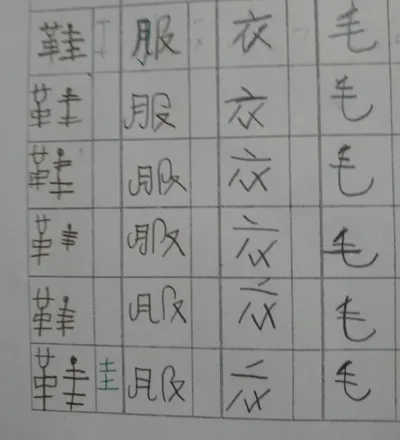 鞋 服 衣 毛
鞋 服 衣 毛
鞋 服 衣 毛
鞋 服 衣 毛
鞋 服 衣 毛
鞋 圭 服 衣 毛